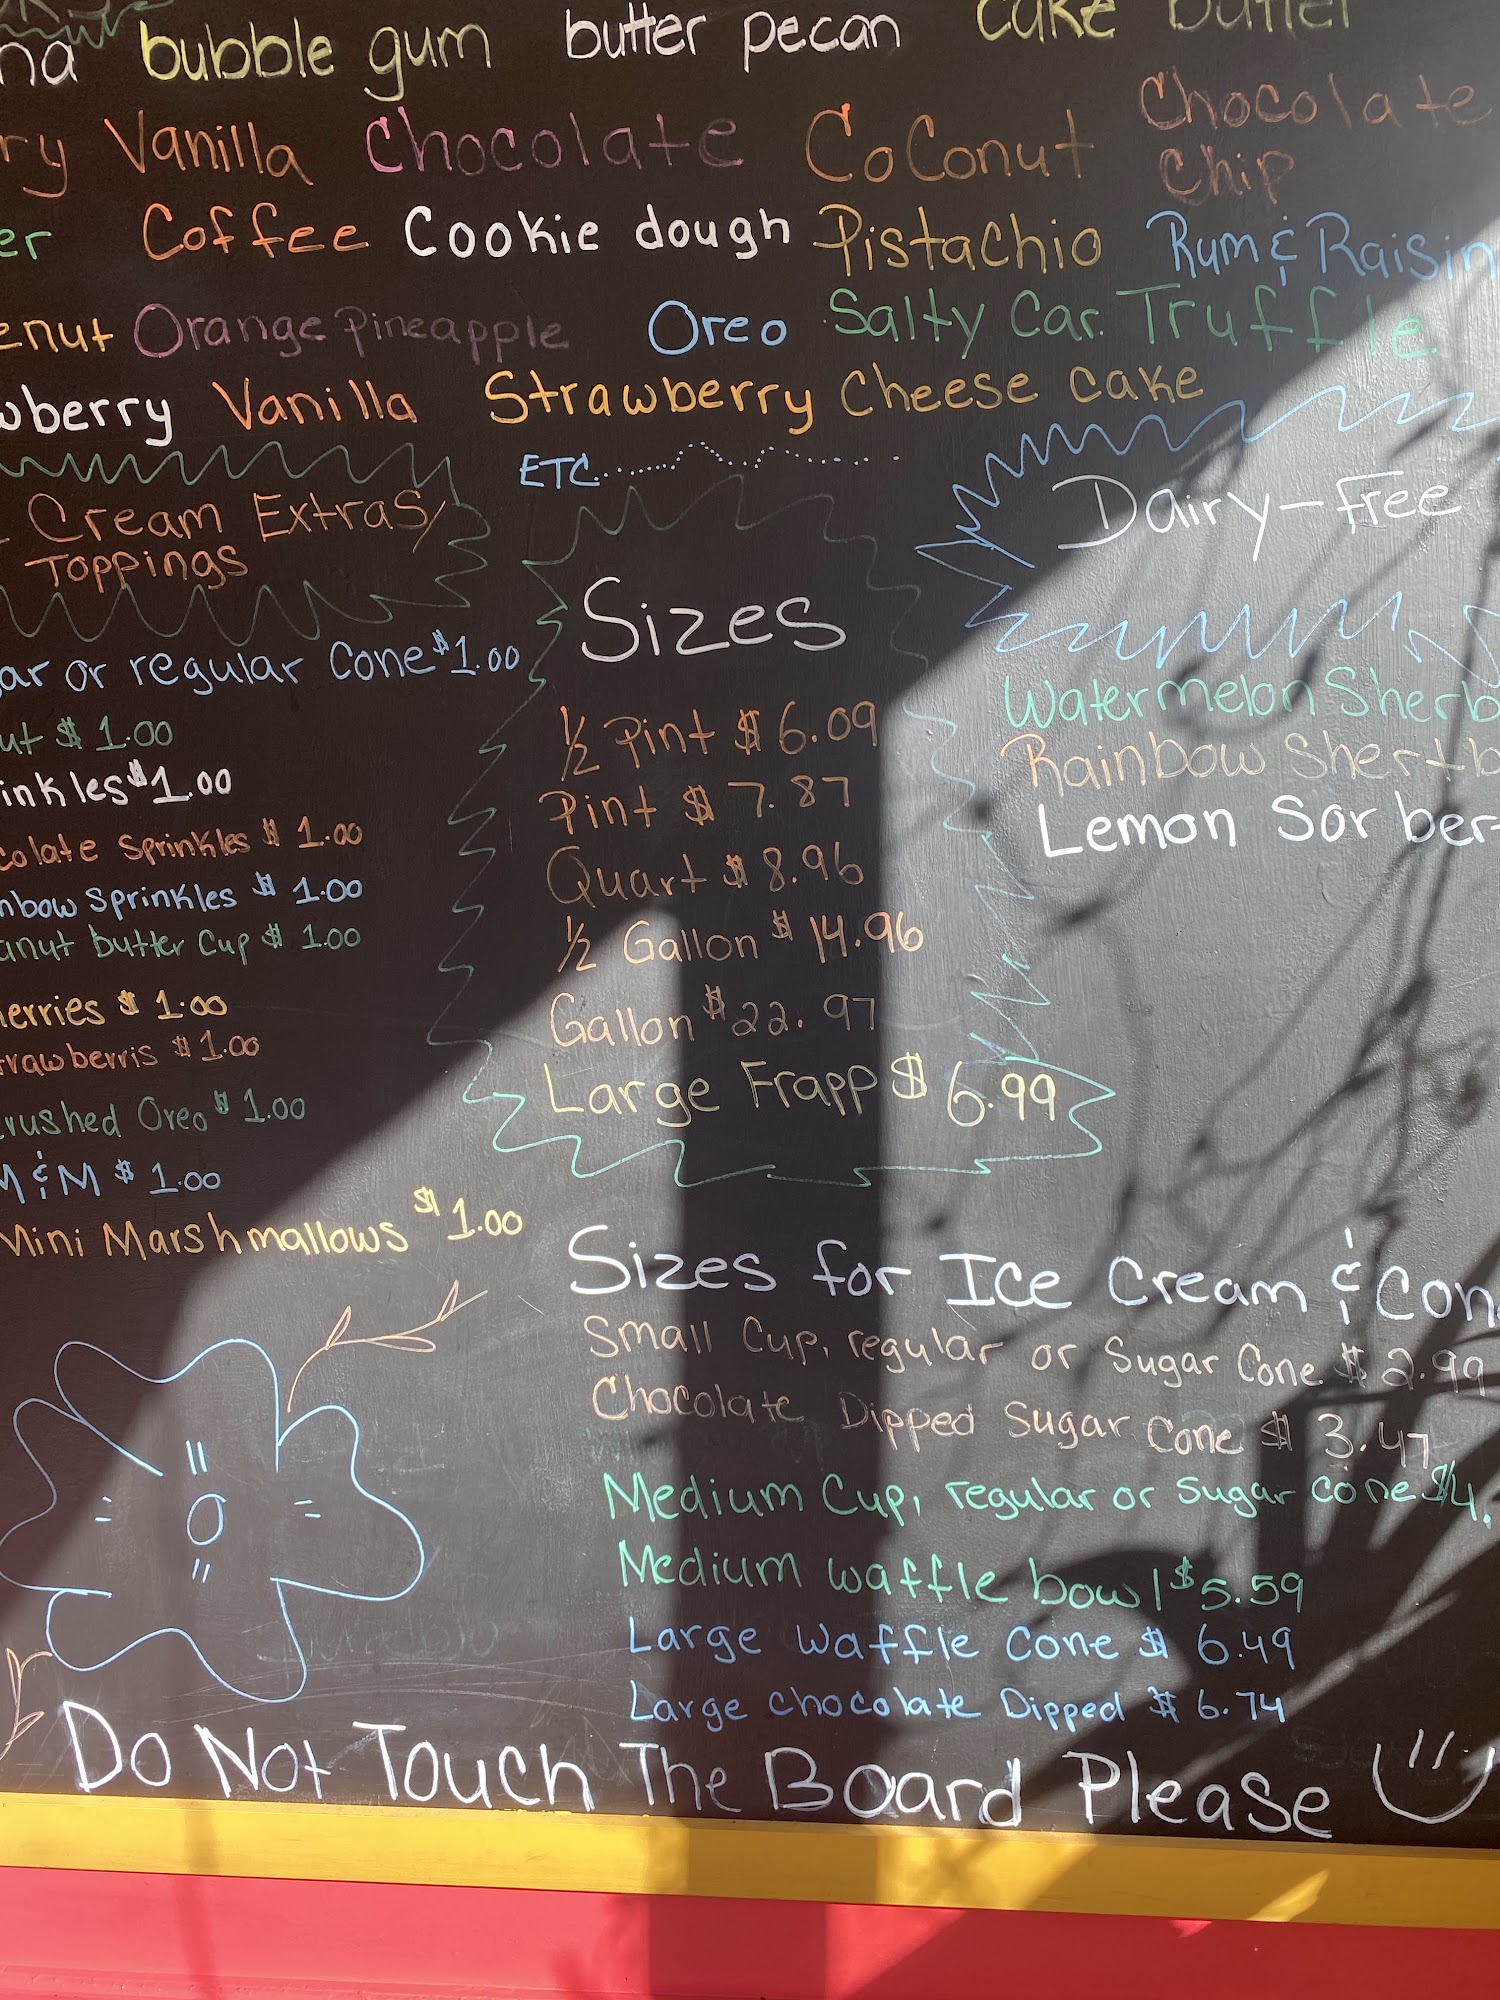 na bubble gum butter pecan cake batter
ry Vanilla Chocolate Coconut Chocolate
Chip
er Coffee Cookie dough Pistachio Rum & Raisin
enut Orange Pineapple Oreo Salty Car. Truffle
wberry Vanilla Strawberry Cheese cake
ETC.
Cream Extras/
Toppings
ar or regular Cone $1.00
ut $1.00
inkles $1.00
colate Sprinkles $1.00
nbow Sprinkles $1.00
anut butter Cup $1.00
erries $1.00
trawberris $1.00
rushed Oreo $1.00
M & M $1.00
Mini Marshmallows $1.00
Sizes
1/2 Pint $6.09
Pint $7.87
Quart $8.96
1/2 Gallon $14.96
Gallon $22.97
Large Frapp $6.99
Dairy-Free
Watermelon Sherb
Rainbow Shertb
Lemon Sorber
Sizes for Ice Cream & Con
Small Cup, regular or Sugar Cone $2.99
Chocolate Dipped Sugar Cone $3.47
Medium Cup, regular or Sugar cone $4.
Medium waffle bowl $5.59
Large Waffle Cone $6.49
Large chocolate Dipped $6.74
Do Not Touch The Board Please